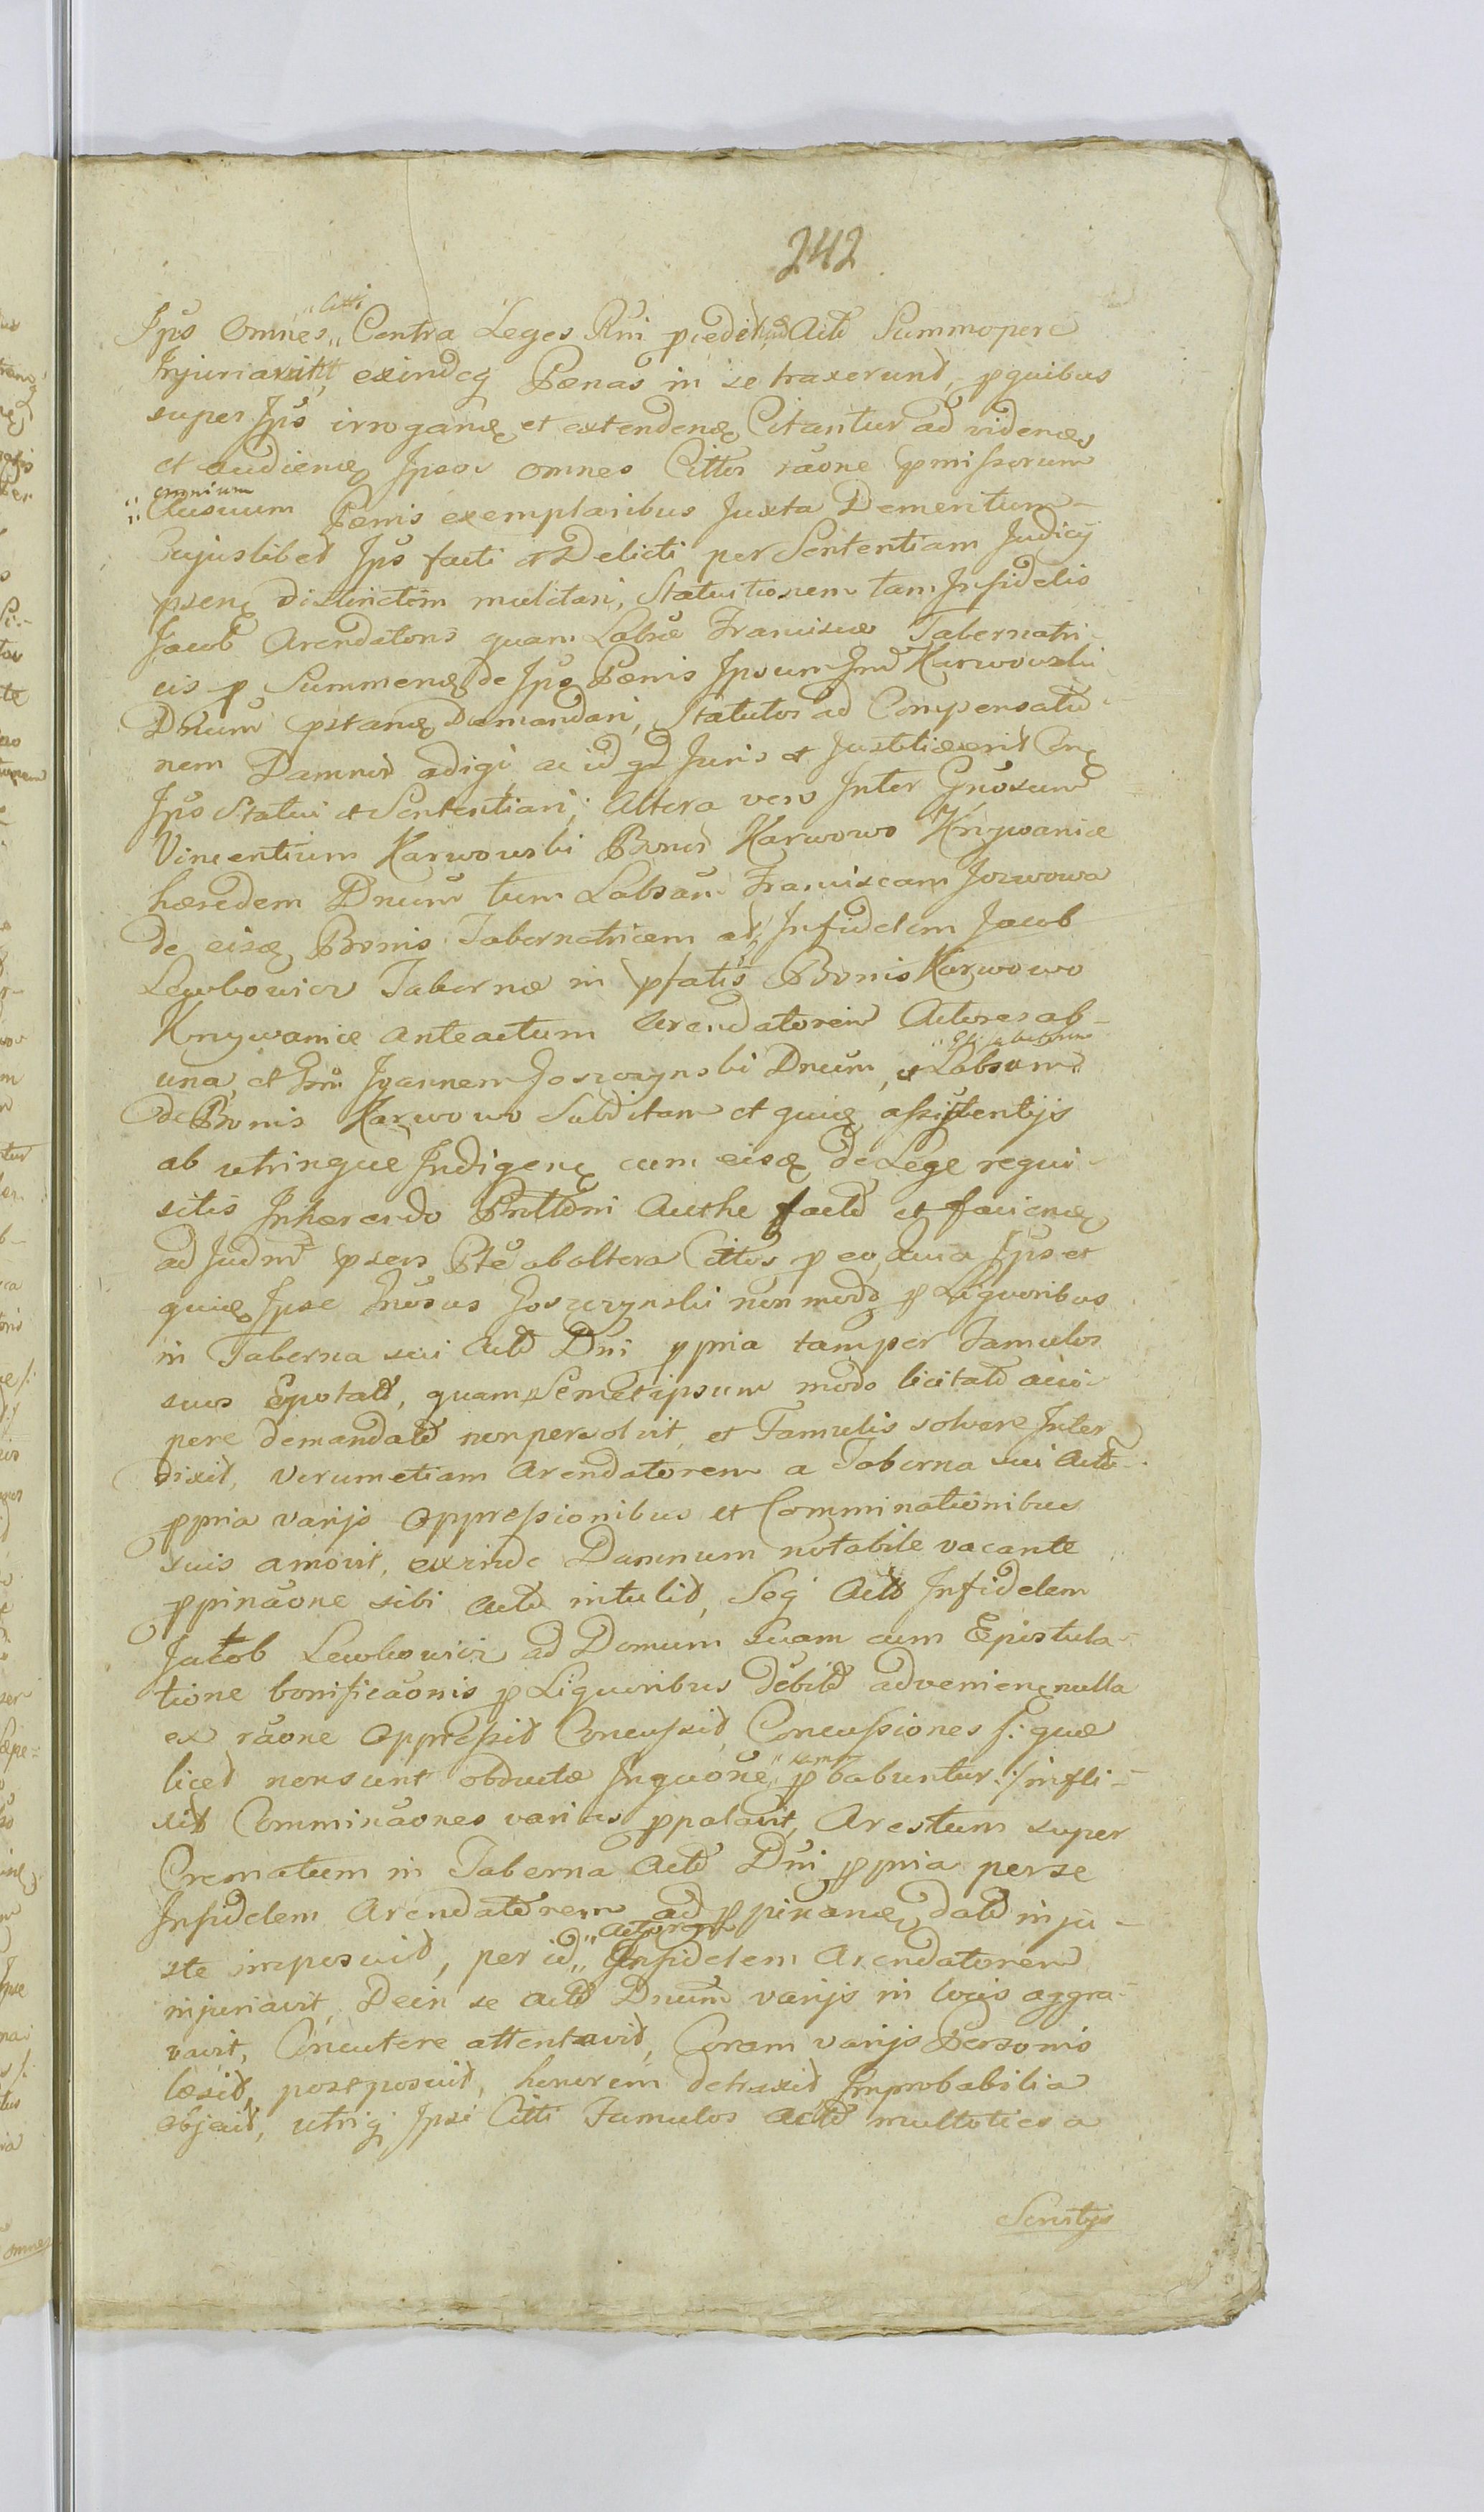 242
Citti
Ips Omnes Contra Leges Rni Actō Summopere
Injuriarunt, exindeq Pœnas in se traxerunt, p quibus
super Ips irrogane et extendene Citantur ad videne
et audiene Ipsos omnes Cittos raone pmissorum
omnium
Ausuum Pœnis exemplaribus Juxta Demeritum
Cujuslibet Ips facti et Delicti per Sententiam Judicij
psens distinctim mulctari, Statuitionem tam Infidelis
Jacob Arendatoris quam Labsæ Franciscæ Tabernatri-
cis p Summene de Ips Pœnis Ipsum Gnm Karwowski
Dnum pstane Demandari, Statutos ad Compensatio-
nem Damnor adigi ac id qd Juris et Justitiæ erit
Ips Statui et Sententiari; Altera vero Inter Gnosum
Vincentium Karwowski Bonor Karwowo Krzywanice
hæredem Dnum tum Labsam Franciscam
de eisd Bonis Tabernatricem et Infidelem Jacob
Lewkowicz Tabernæ in pfatis Bonis Karwowo
Krzywanice anteactum Arendatorem Actores ab
una, et Gnm Joannem Goszczynski Dnum, et Labsam
de Bonis Karwowo Subditam et quie assistentijs
ab utrinque Indigene cum eisd de Lege requi-
sitis Inhærendo Prottōni Authe factō et faciene
ad Judm psens Pte ab altera Cittos p eo, quia Ips et
quie Ipse Gnosus Goszczynski non modo p Liquoribus
in Taberna sui Actō Dni ppria tam per Famulos
suos Epotatō, quam Semetipsum modo licitatō acci-
pere demandatō non persolvit, et Famulis solvere Inter
dixit, verum etiam Arendatorem a Taberna sui Actō
ppria varijs Oppressionibus et Comminationibus
suis amovit, exinde Damnum notabile vacante
ppinaone sibi Actō intulit, Seq Actō Infidelem
Jacob Lewkowicz ad Domum suam cum Epistula-
tione bonificaonis p Liquoribus debitō adveniene nulla
ex raone Oppressit Concussit, Concussiones /: quæ
licet non sunt obductæ Inquone, pbabuntur :/ infli-
xit Comminaones varias ppalavit, Arestum super
Crematum in Taberna Actō Dni ppria per se
Infidelem Arendatorem ad ppinane datō inju-
Actorem
ste imposuit, per id Infidelem Arendatorem
injuriavit, Dein se Actō Dnum varijs in locis aggra-
vavit, Concutere attentavit, Coram varijs Personis
læsit, postposuit, honorem detraxit, Improbabilia
objecit, utriq Ipsi Citti Famulos Actō multoties a
Servitijs